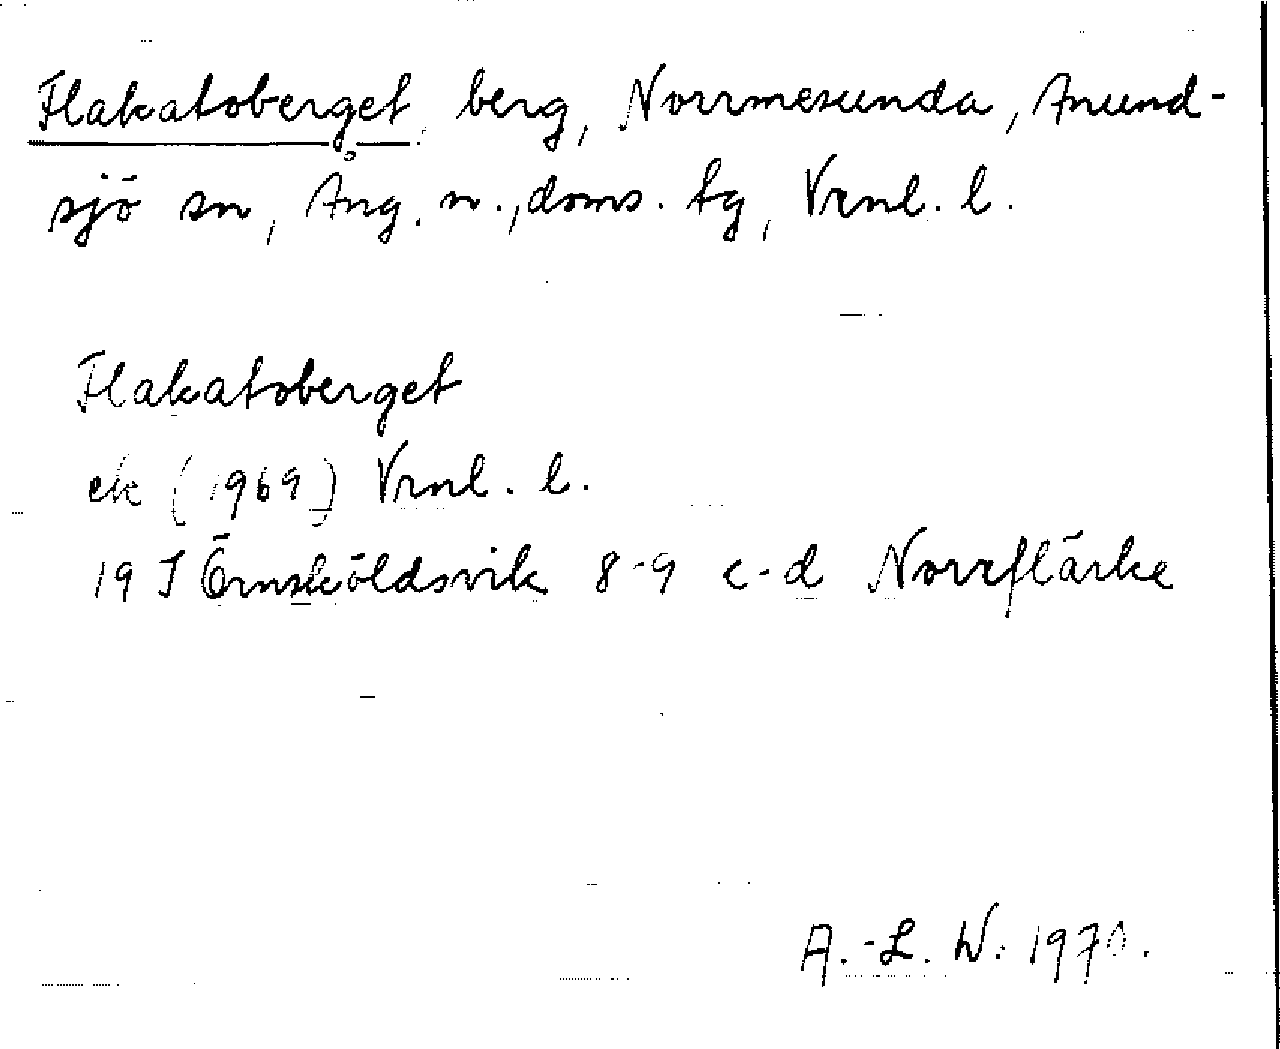 Flakatoberget, berg, Norrmesunda, Anund-
sjö sn, Ång. n., doms. tg, Vrnl. l.
Flakatoberget
ek (1969) Vrnl. l.
19 J Örnsköldsvik 8-9 c-d Norrflärke
A.-L. W. 1970.